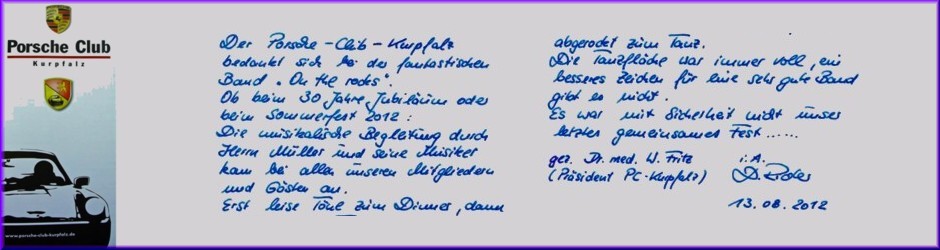 Porsche Club
Kurpfalz
www.porsche-club-kurpfalz.de
Der Porsche-Club-Kurpfalz
bedankt sich bei der fantastischen
Band „On the rocks".
Ob beim 30 Jahre Jubiläum oder
beim Sommerfest 2012:
Die musikalische Begleitung durch
Herrn Müller und seine Musiker
kam bei allen unseren Mitgliedern
und Gästen an.
Erst leise Töne zum Dinner, dann
abgerodet zum Tanz.
Die Tanzfläche war immer voll, ein
besseres Zeichen für eine sehr gute Band
gibt es nicht.
Es war mit Sicherheit nicht unser
letztes gemeinsames Fest......
gez. Dr. med. W. Fritz i.A.
(Präsident PC-Kurpfalz)
13.08.2012